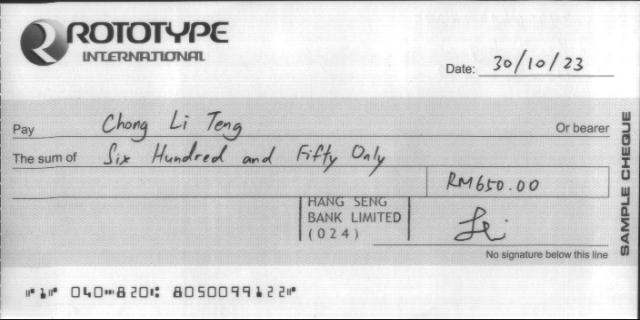 ROTOTYPE
INTERNATIONAL
Date: 30/10/23
Pay Chong Li Teng Or bearer
The sum of Six Hundred and Fifty Only
RM650.00
HANG SENG
BANK LIMITED
(024)
No signature below this line
SAMPLE CHEQUE
"1" 040-820: 8050099122"